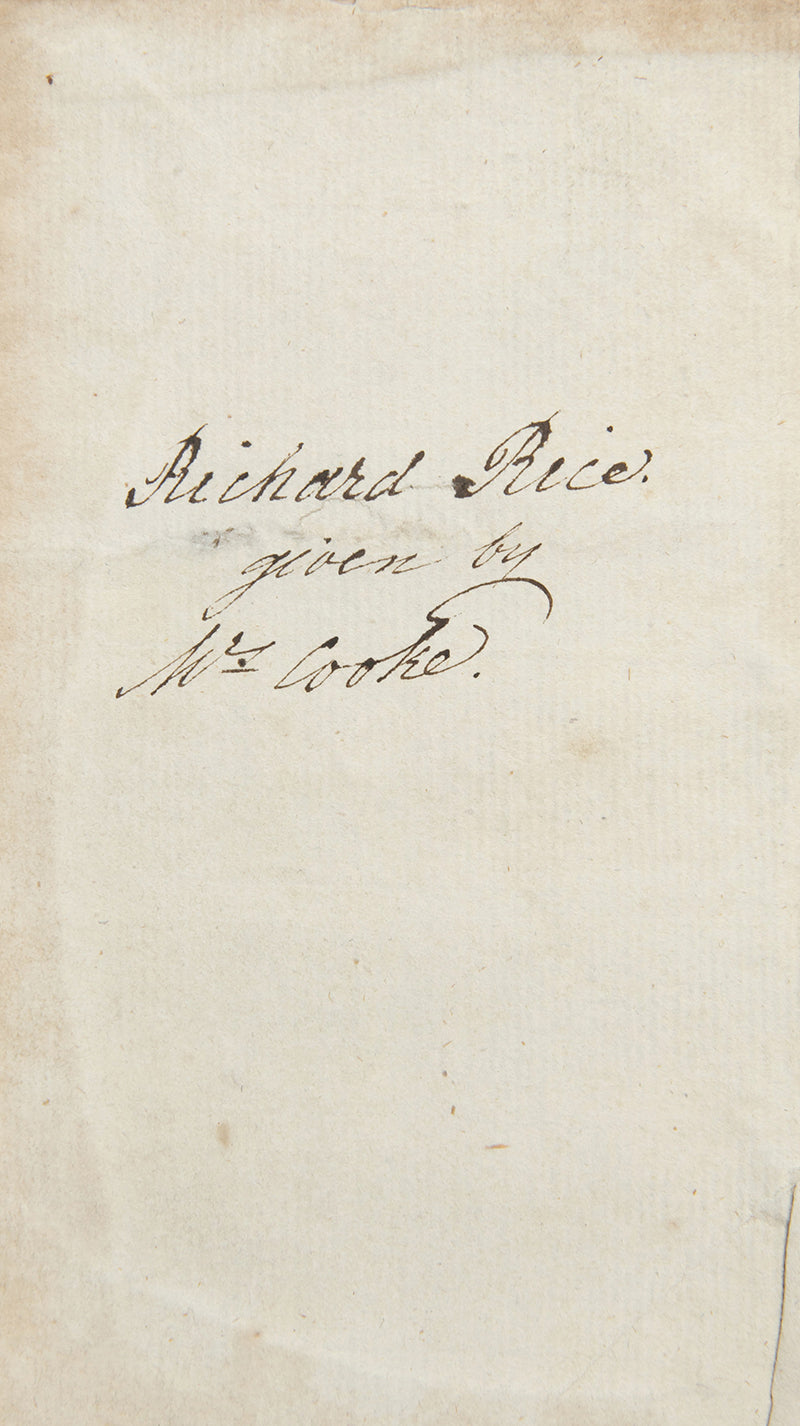 Richard Rice.
given by
Mrs Cooke.